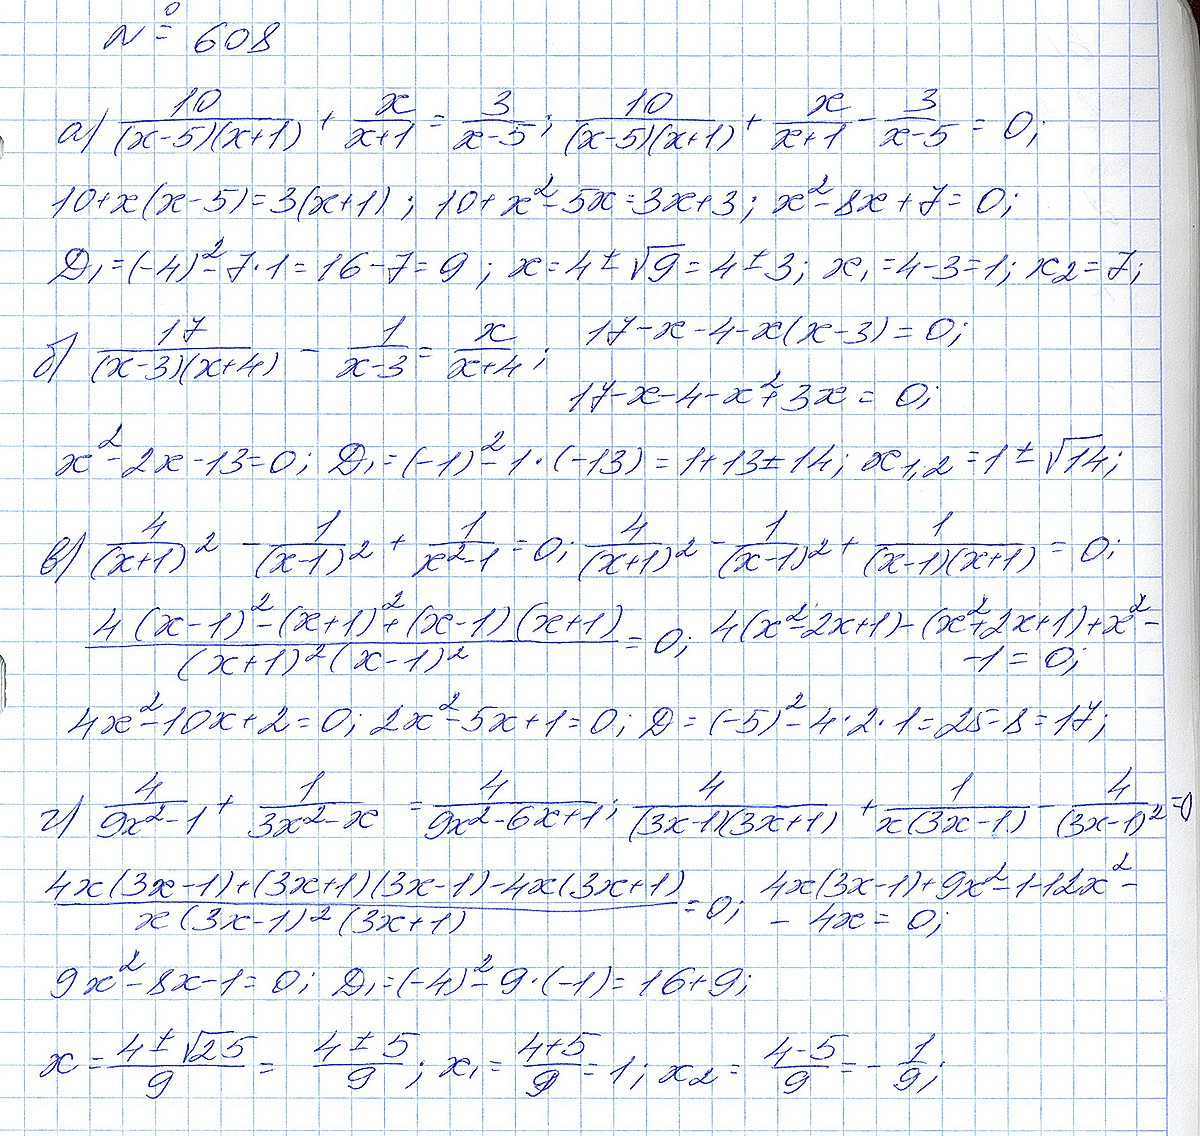 № 608
а) 10/((x-5)(x+1)) + x/(x+1) = 3/(x-5); 10/((x-5)(x+1)) + x/(x+1) - 3/(x-5) = 0;
10+x(x-5)=3(x+1); 10+x²-5x=3x+3; x²-8x+7=0;
D₁=(-4)²-7·1=16-7=9; x=4±√9=4±3; x₁=4-3=1; x₂=7;
б) 17/((x-3)(x+4)) - 1/(x-3) = x/(x+4); 17-x-4-x(x-3)=0;
17-x-4-x²+3x=0;
x²-2x-13=0; D₁=(-1)²-1·(-13)=1+13±14; x₁,₂=1±√14;
в) 4/(x+1)² - 1/(x-1)² + 1/(x²-1) = 0; 4/(x+1)² - 1/(x-1)² + 1/((x-1)(x+1)) = 0;
(4(x-1)²-(x+1)²+(x-1)(x+1))/((x+1)²(x-1)²) = 0; 4(x²-2x+1)-(x²+2x+1)+x²-
-1=0;
4x²-10x+2=0; 2x²-5x+1=0; D=(-5)²-4·2·1=25-8=17;
г) 4/(9x²-1) + 1/(3x²-x) = 4/(9x²-6x+1); 4/((3x-1)(3x+1)) + 1/(x(3x-1)) - 4/(3x-1)² = 0
(4x(3x-1)+(3x+1)(3x-1)-4x(3x+1))/(x(3x-1)²(3x+1)) = 0; 4x(3x-1)+9x²-1-12x²-
-4x=0;
9x²-8x-1=0; D₁=(-4)²-9·(-1)=16+9;
x=(4±√25)/9 = (4±5)/9; x₁=(4+5)/9=1; x₂=(4-5)/9=-1/9;